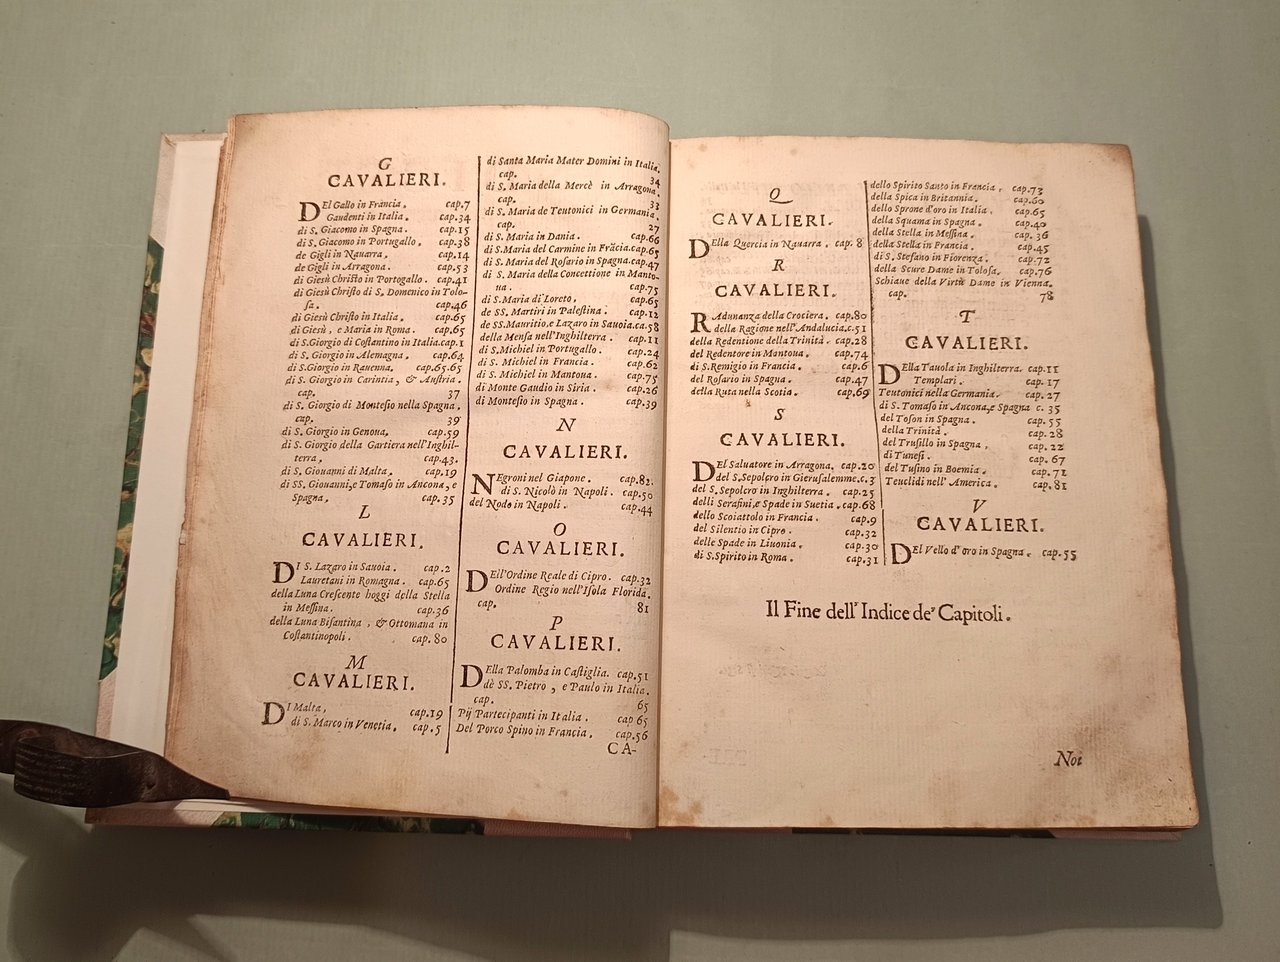 G
CAVALIERI.
DEl Gallo in Francia. cap.7
Gaudenti in Italia. cap.34
di S. Giacomo in Spagna. cap.15
di S. Giacomo in Portugallo. cap.38
de Gigli in Nauarra. cap.14
de Gigli in Arragona. cap.53
di Giesù Christo in Portogallo. cap.41
di Giesù Christo di S. Domenico in Tolo-
sa. cap.46
di Giesù Christo in Italia. cap.65
di Giesù, e Maria in Roma. cap.65
di S.Giorgio di Costantino in Italia.cap.1
di S. Giorgio in Alemagna. cap.64
di S.Giorgio in Rauenna. cap.65.65
di S. Giorgio in Carintia, & Austria.
cap. 37
di S. Giorgio di Montesio nella Spagna.
cap. 39
di S. Giorgio in Genoua. cap.59
di S. Giorgio della Gartiera nell'Inghil-
terra. cap.43.
di S. Giouanni di Malta. cap.19
di SS. Giouanni,e Tomaso in Ancona,e
Spagna. cap.35
L
CAVALIERI.
DI S. Lazaro in Sauoia. cap.2
Lauretani in Romagna. cap.65
della Luna Crescente hoggi della Stella
in Messina. cap.36
della Luna Bisantina, & Ottomana in
Costantinopoli. cap.80
M
CAVALIERI.
DI Malta. cap.19
di S. Marco in Venetia. cap.5
di Santa Maria Mater Domini in Italia.
cap. 34
di S. Maria della Mercè in Arragona.
cap. 33
di S. Maria de Teutonici in Germania.
cap. 27
di S. Maria in Dania. cap.66
di S.Maria del Carmine in Frācia.cap.65
di S. Maria del Rosario in Spagna.cap.47
di S. Maria della Concettione in Manto-
ua. cap.75
di S. Maria di Loreto. cap.65
de SS. Martiri in Palestina. cap.12
de SS.Mauritio,e Lazaro in Sauoia.ca.58
della Mensa nell'Inghilterra. cap.11
di S.Michiel in Portugallo. cap.24
di S. Michiel in Francia. cap.62
di S. Michiel in Mantoua. cap.75
di Monte Gaudio in Siria. cap.26
di Montesio in Spagna. cap.39
N
CAVALIERI.
NEgroni nel Giapone. cap.82.
di S. Nicolò in Napoli. cap.50
del Nodo in Napoli. cap.44
O
CAVALIERI.
DEll'Ordine Reale di Cipro. cap.32
Ordine Regio nell'Isola Florida.
cap. 81
P
CAVALIERI.
DElla Palomba in Castiglia. cap.51
dè SS. Pietro, e Paulo in Italia.
cap. 65
Pij Partecipanti in Italia. cap 65
Del Porco Spino in Francia. cap.56
CA-
Q
CAVALIERI.
DElla Quercia in Nauarra. cap. 8
R
CAVALIERI.
RAdunanza della Crociera. cap.80
della Ragione nell'Andalucia.c.51
della Redentione della Trinità. cap.28
del Redentore in Mantoua. cap.74
di S.Remigio in Francia. cap.6
del Rosario in Spagna. cap.47
della Ruta nella Scotia. cap.69
S
CAVALIERI.
DEl Saluatore in Arragona. cap.20
del S.Sepolcro in Gierusalemme.c.3
del S. Sepolcro in Inghilterra. cap.25
delli Serafini,e Spade in Suetia.cap.68
dello Scoiattolo in Francia. cap.9
del Silentio in Cipro. cap.32
delle Spade in Liuonia. cap.30
di S.Spirito in Roma. cap.31
dello Spirito Santo in Francia. cap.73
della Spica in Britannia. cap.60
dello Sprone d'oro in Italia. cap.65
della Squama in Spagna. cap.40
della Stella in Messina. cap. 36
della Stella in Francia. cap.45
di S. Stefano in Fiorenza. cap.72
della Scure Dame in Tolosa. cap.76
Schiaue della Virtù Dame in Vienna.
cap. 78
T
CAVALIERI.
DElla Tauola in Inghilterra. cap.11
Templari. cap. 17
Teutonici nella Germania. cap. 27
di S. Tomaso in Ancona,e Spagna c. 35
del Toson in Spagna. cap. 55
della Trinità. cap. 28
del Trusillo in Spagna. cap. 22
di Tunesi. cap. 67
del Tusino in Boemia. cap. 71
Teuclidi nell' America. cap.81
V
CAVALIERI.
DEl Vello d'oro in Spagna. cap.55
Il Fine dell'Indice de' Capitoli.
Noi